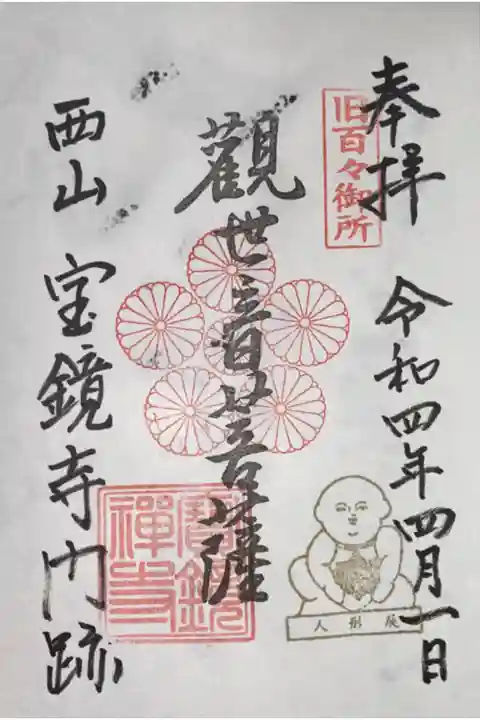 奉拝 令和四年四月一日
旧百々御所
觀世音菩薩
西山 宝鏡寺門跡
寶鏡禅寺
人形展